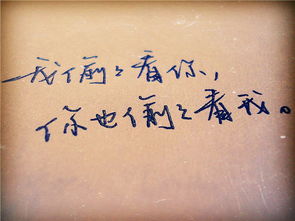 我偷々看你，
你也偷々看我。